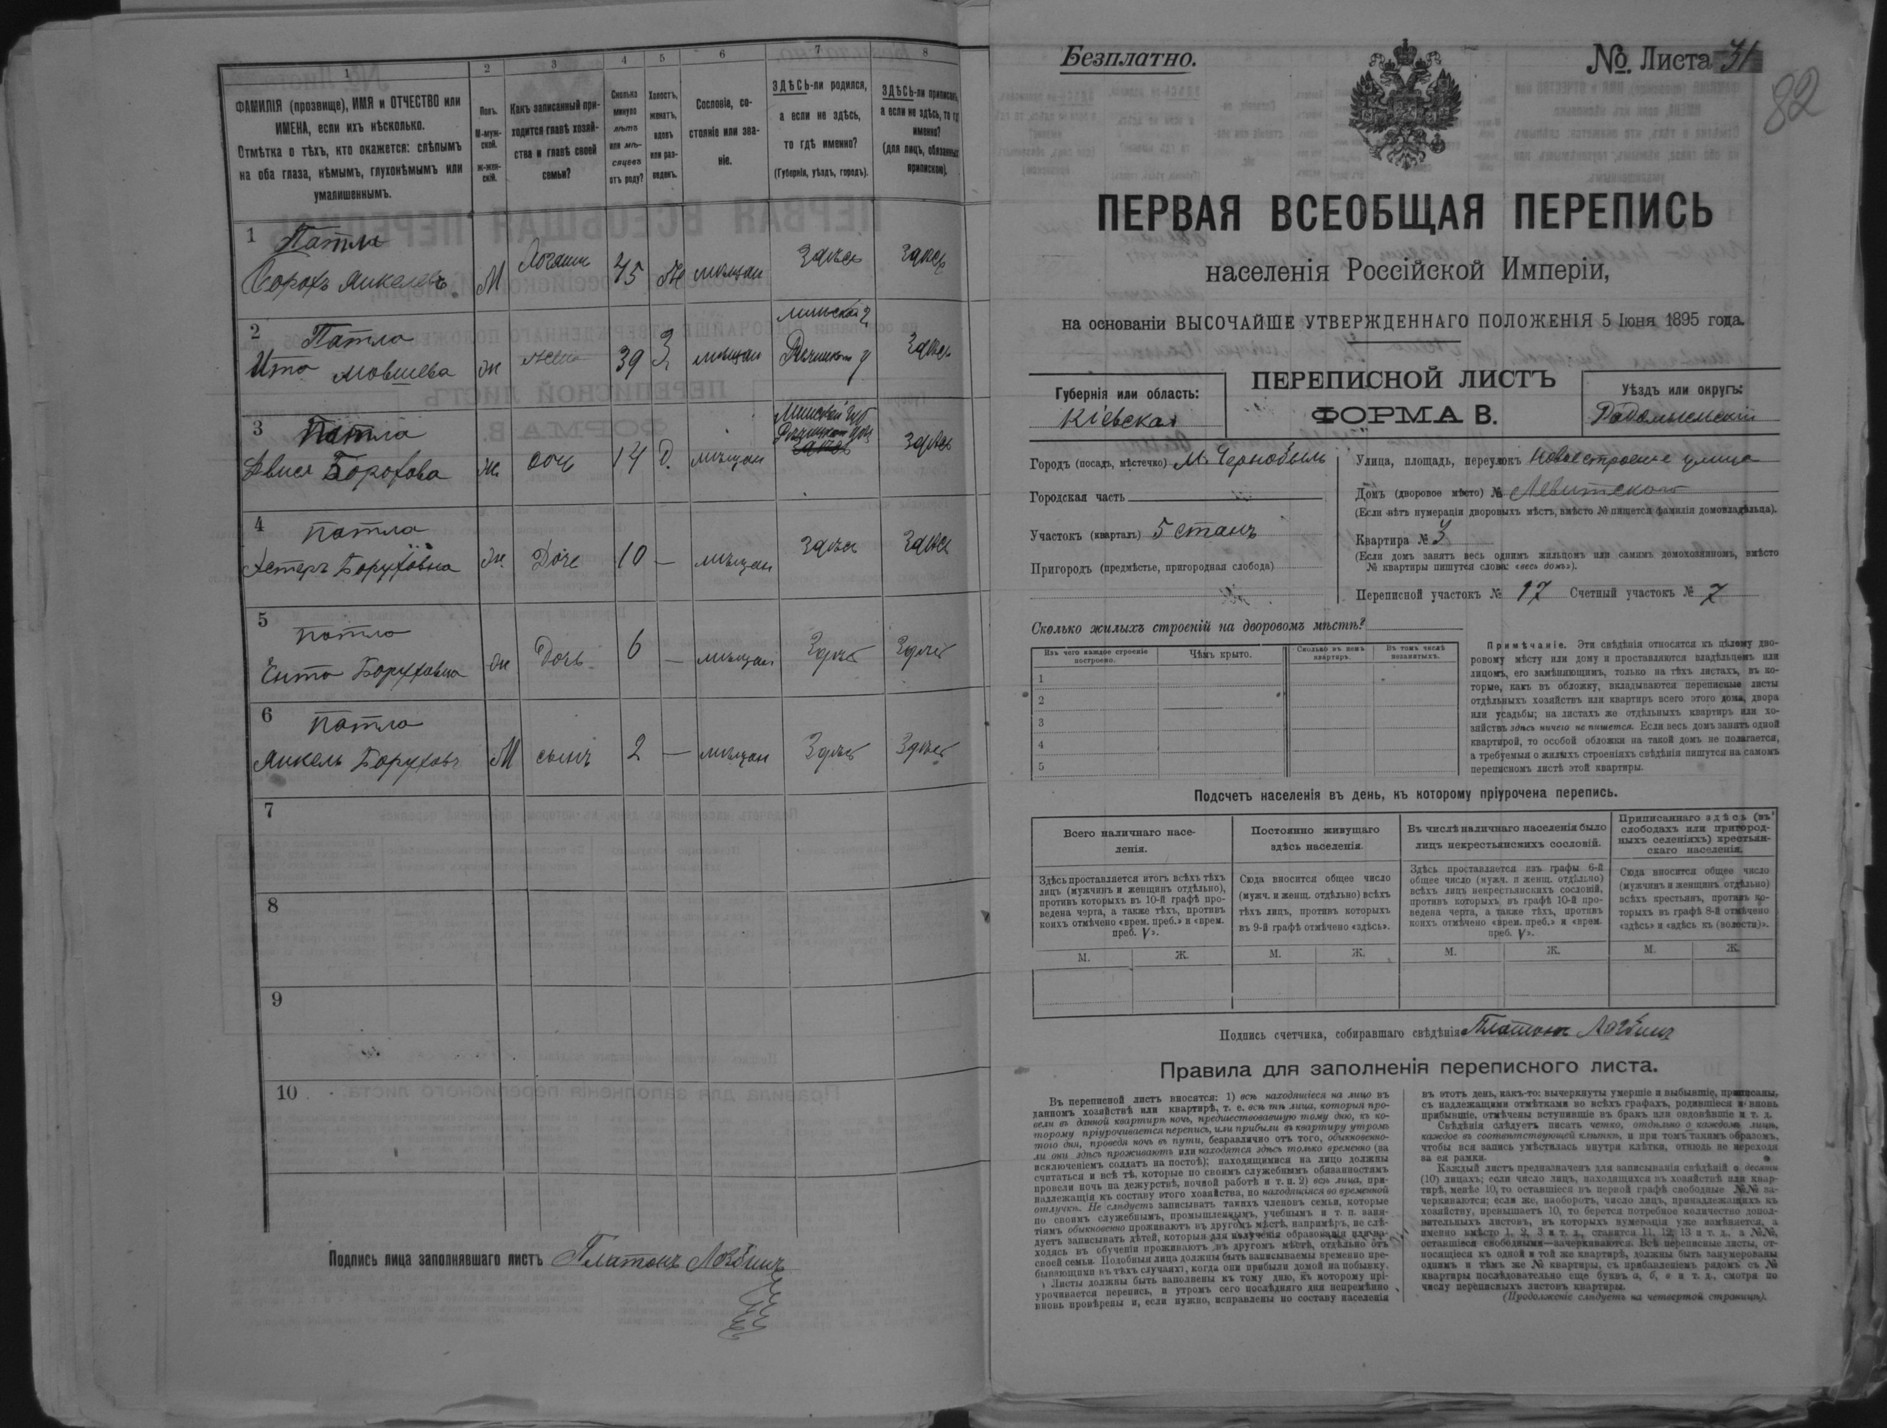 1
2
3
4
5
6
7
8
ФАМИЛІЯ (прозвище), ИМЯ и ОТЧЕСТВО или
ИМЕНА, если ихъ нѣсколько.
Отмѣтка о тѣхъ, кто окажется: слѣпымъ
на оба глаза, нѣмымъ, глухонѣмымъ или
умалишеннымъ.
Полъ.
М-муж-
ской.
Ж-жен-
скій.
Какъ записанный при-
ходится главѣ хозяй-
ства и главѣ своей
семьи?
Сколько
минуло
лѣтъ
или мѣ-
сяцевъ
отъ роду?
Холостъ,
женатъ,
вдовъ
или раз-
веденъ.
Сословіе, со-
стояніе или зва-
ніе.
ЗДѢСЬ-ли родился,
а если не здѣсь,
то гдѣ именно?
(Губернія, уѣздъ, городъ).
ЗДѢСЬ-ли приписанъ,
а если не здѣсь, то гдѣ
именно?
(для лицъ, обязанныхъ
припиской).
1
М
45
мѣщан
Здѣсь
Здѣсь
2 Патла
Ита Мовшева
ж
39
З.
мѣщан
Здѣсь
3 Патла
Борохова
ж
доч
14
Д.
мѣщан
Здѣсь
4 Патла
Естеръ Боруховна
ж
Доче
10
—
мѣщан
Здѣсь
Здѣсь
5 Патла
Ента Боруховна
ж
Дочь
6
—
мѣщан
Здѣсь
Здѣсь
6 Патла
Янкель Боруховъ
М
сынъ
2
—
мѣщан
Здѣсь
Здѣсь
7
8
9
10
Подпись лица заполнявшаго листъ Платонъ
Безплатно.
№ Листа 31
82
ПЕРВАЯ ВСЕОБЩАЯ ПЕРЕПИСЬ
населенія Россійской Имперіи,
на основаніи ВЫСОЧАЙШЕ УТВЕРЖДЕННАГО ПОЛОЖЕНІЯ 5 Іюня 1895 года.
ПЕРЕПИСНОЙ ЛИСТЪ
ФОРМА В.
Губернія или область:
Кіевская
Уѣздъ или округъ:
Радомысльскій
Городъ (посадъ, мѣстечко) М. Чернобыль
Городская часть
Участокъ (кварталъ) 5 станъ
Пригородъ (предмѣстье, пригородная слобода)
Улица, площадь, переулокъ Новое строение улица
Домъ (дворовое мѣсто) № Левитского
(Если нѣтъ нумераціи дворовыхъ мѣстъ, вмѣсто № пишется фамилія домовладѣльца).
Квартира № 3
(Если домъ занятъ весь однимъ жильцомъ или самимъ домохозяиномъ, вмѣсто
№ квартиры пишутся слова: «весь домъ»).
Переписной участокъ № 17 Счетный участокъ № 7
Сколько жилыхъ строеній на дворовомъ мѣстѣ?
Изъ чего каждое строеніе
построено.
Чѣмъ крыто.
Сколько въ немъ
квартиръ.
Въ томъ числѣ
незанятыхъ.
1
2
3
4
5
Примѣчаніе. Эти свѣдѣнія относятся къ цѣлому дво-
ровому мѣсту или дому и проставляются владѣльцемъ или
лицомъ, его замѣняющимъ, только на тѣхъ листахъ, въ ко-
торые, какъ въ обложку, вкладываются переписные листы
отдѣльныхъ хозяйствъ или квартиръ всего этого дома, двора
или усадьбы; на листахъ же отдѣльныхъ квартиръ или хо-
зяйствъ здѣсь ничего не пишется. Если весь домъ занятъ одной
квартирой, то особой обложки на такой домъ не полагается,
а требуемыя о жилыхъ строеніяхъ свѣдѣнія пишутся на самомъ
переписномъ листѣ этой квартиры.
Подсчетъ населенія въ день, къ которому пріурочена перепись.
Всего наличнаго насе-
ленія.
Постоянно живущаго
здѣсь населенія.
Въ числѣ наличнаго населенія было
лицъ некрестьянскихъ сословій.
Приписаннаго здѣсь (въ
слободахъ или пригород-
ныхъ селеніяхъ) крестьян-
скаго населенія.
Здѣсь проставляется итогъ всѣхъ тѣхъ
лицъ (мужчинъ и женщинъ отдѣльно),
противъ которыхъ въ 10-й графѣ про-
ведена черта, а также тѣхъ, противъ
коихъ отмѣчено «врем. преб.» и «врем.
преб. V».
Сюда вносится общее число
(мужч. и женщ. отдѣльно) всѣхъ
тѣхъ лицъ, противъ которыхъ
въ 9-й графѣ отмѣчено «здѣсь».
Здѣсь проставляется изъ графы 6-й
общее число (мужч. и женщ. отдѣльно)
всѣхъ лицъ некрестьянскихъ сословій,
противъ которыхъ въ графѣ 10-й про-
ведена черта, а также тѣхъ, противъ
коихъ отмѣчено «врем. преб.» и «врем.
преб. V».
Сюда вносится общее число
(мужчинъ и женщинъ отдѣльно)
всѣхъ крестьянъ, противъ ко-
торыхъ въ графѣ 8-й отмѣчено
«здѣсь» и «здѣсь къ (волости)».
М. Ж. М. Ж. М. Ж. М. Ж.
Подпись счетчика, собиравшаго свѣдѣнія Платонъ
Правила для заполненія переписного листа.
Въ переписной листъ вносятся: 1) всѣ находящіеся на лицо въ
данномъ хозяйствѣ или квартирѣ, т. е. всѣ тѣ лица, которыя про-
вели въ данной квартирѣ ночь, предшествовавшую тому дню, къ ко-
торому пріурочивается перепись, или прибыли въ квартиру утромъ
того дня, проведя ночь въ пути, безразлично отъ того, обыкновенно-
ли они здѣсь проживаютъ или находятся здѣсь только временно (за
исключеніемъ солдатъ на постоѣ); находящимися на лицо должны
считаться и всѣ тѣ, которые по своимъ служебнымъ обязанностямъ
провели ночь на дежурствѣ, ночной работѣ и т. п. 2) всѣ лица, при-
надлежащія къ составу этого хозяйства, но находящіяся во временной
отлучкѣ. Не слѣдуетъ записывать такихъ членовъ семьи, которые
по своимъ служебнымъ, промышленнымъ, учебнымъ и т. п. заня-
тіямъ обыкновенно проживаютъ въ другомъ мѣстѣ, напримѣръ, не слѣ-
дуетъ записывать дѣтей, которыя для полученія образованія или на-
ходясь въ обученіи проживаютъ въ другомъ мѣстѣ, отдѣльно отъ
своей семьи. Подобныя лица должны быть записываемы временно пре-
бывающими въ тѣхъ случаяхъ, когда они прибыли домой на побывку.
Листы должны быть заполнены къ тому дню, къ которому прі-
урочивается перепись, и утромъ сего послѣдняго дня непремѣнно
вновь провѣрены и, если нужно, исправлены по составу населенія
въ этотъ день, какъ-то: вычеркнуты умершіе и выбывшіе, прописаны,
съ надлежащими отмѣтками во всѣхъ графахъ, родившіеся и вновь
прибывшіе, отмѣчены вступившіе въ бракъ или овдовѣвшіе и т. д.
Свѣдѣнія слѣдуетъ писать четко, отдѣльно о каждомъ лицѣ,
каждое въ соотвѣтствующей клѣткѣ, и при томъ такимъ образомъ,
чтобы вся запись умѣстилась внутри клѣтки, отнюдь не переходя
за ея рамки.
Каждый листъ предназначенъ для записыванія свѣдѣній о десяти
(10) лицахъ; если число лицъ, находящихся въ хозяйствѣ или квар-
тирѣ, менѣе 10, то оставшіеся въ первой графѣ свободные №№ за-
черкиваются; если же, наоборотъ, число лицъ, принадлежащихъ къ
хозяйству, превышаетъ 10, то берется потребное количество допол-
нительныхъ листовъ, въ которыхъ нумерація уже измѣняется, а
именно вмѣсто 1, 2, 3 и т. д., ставится 11, 12, 13 и т. д., а №№,
оставшіеся свободными—зачеркиваются. Всѣ переписные листы, от-
носящіеся къ одной и той же квартирѣ, должны быть занумерованы
однимъ и тѣмъ же № квартиры, съ прибавленіемъ рядомъ съ №
квартиры послѣдовательно еще буквъ а, б, в и т. д., смотря по
числу переписныхъ листовъ квартиры.
(Продолженіе слѣдуетъ на четвертой страницѣ).